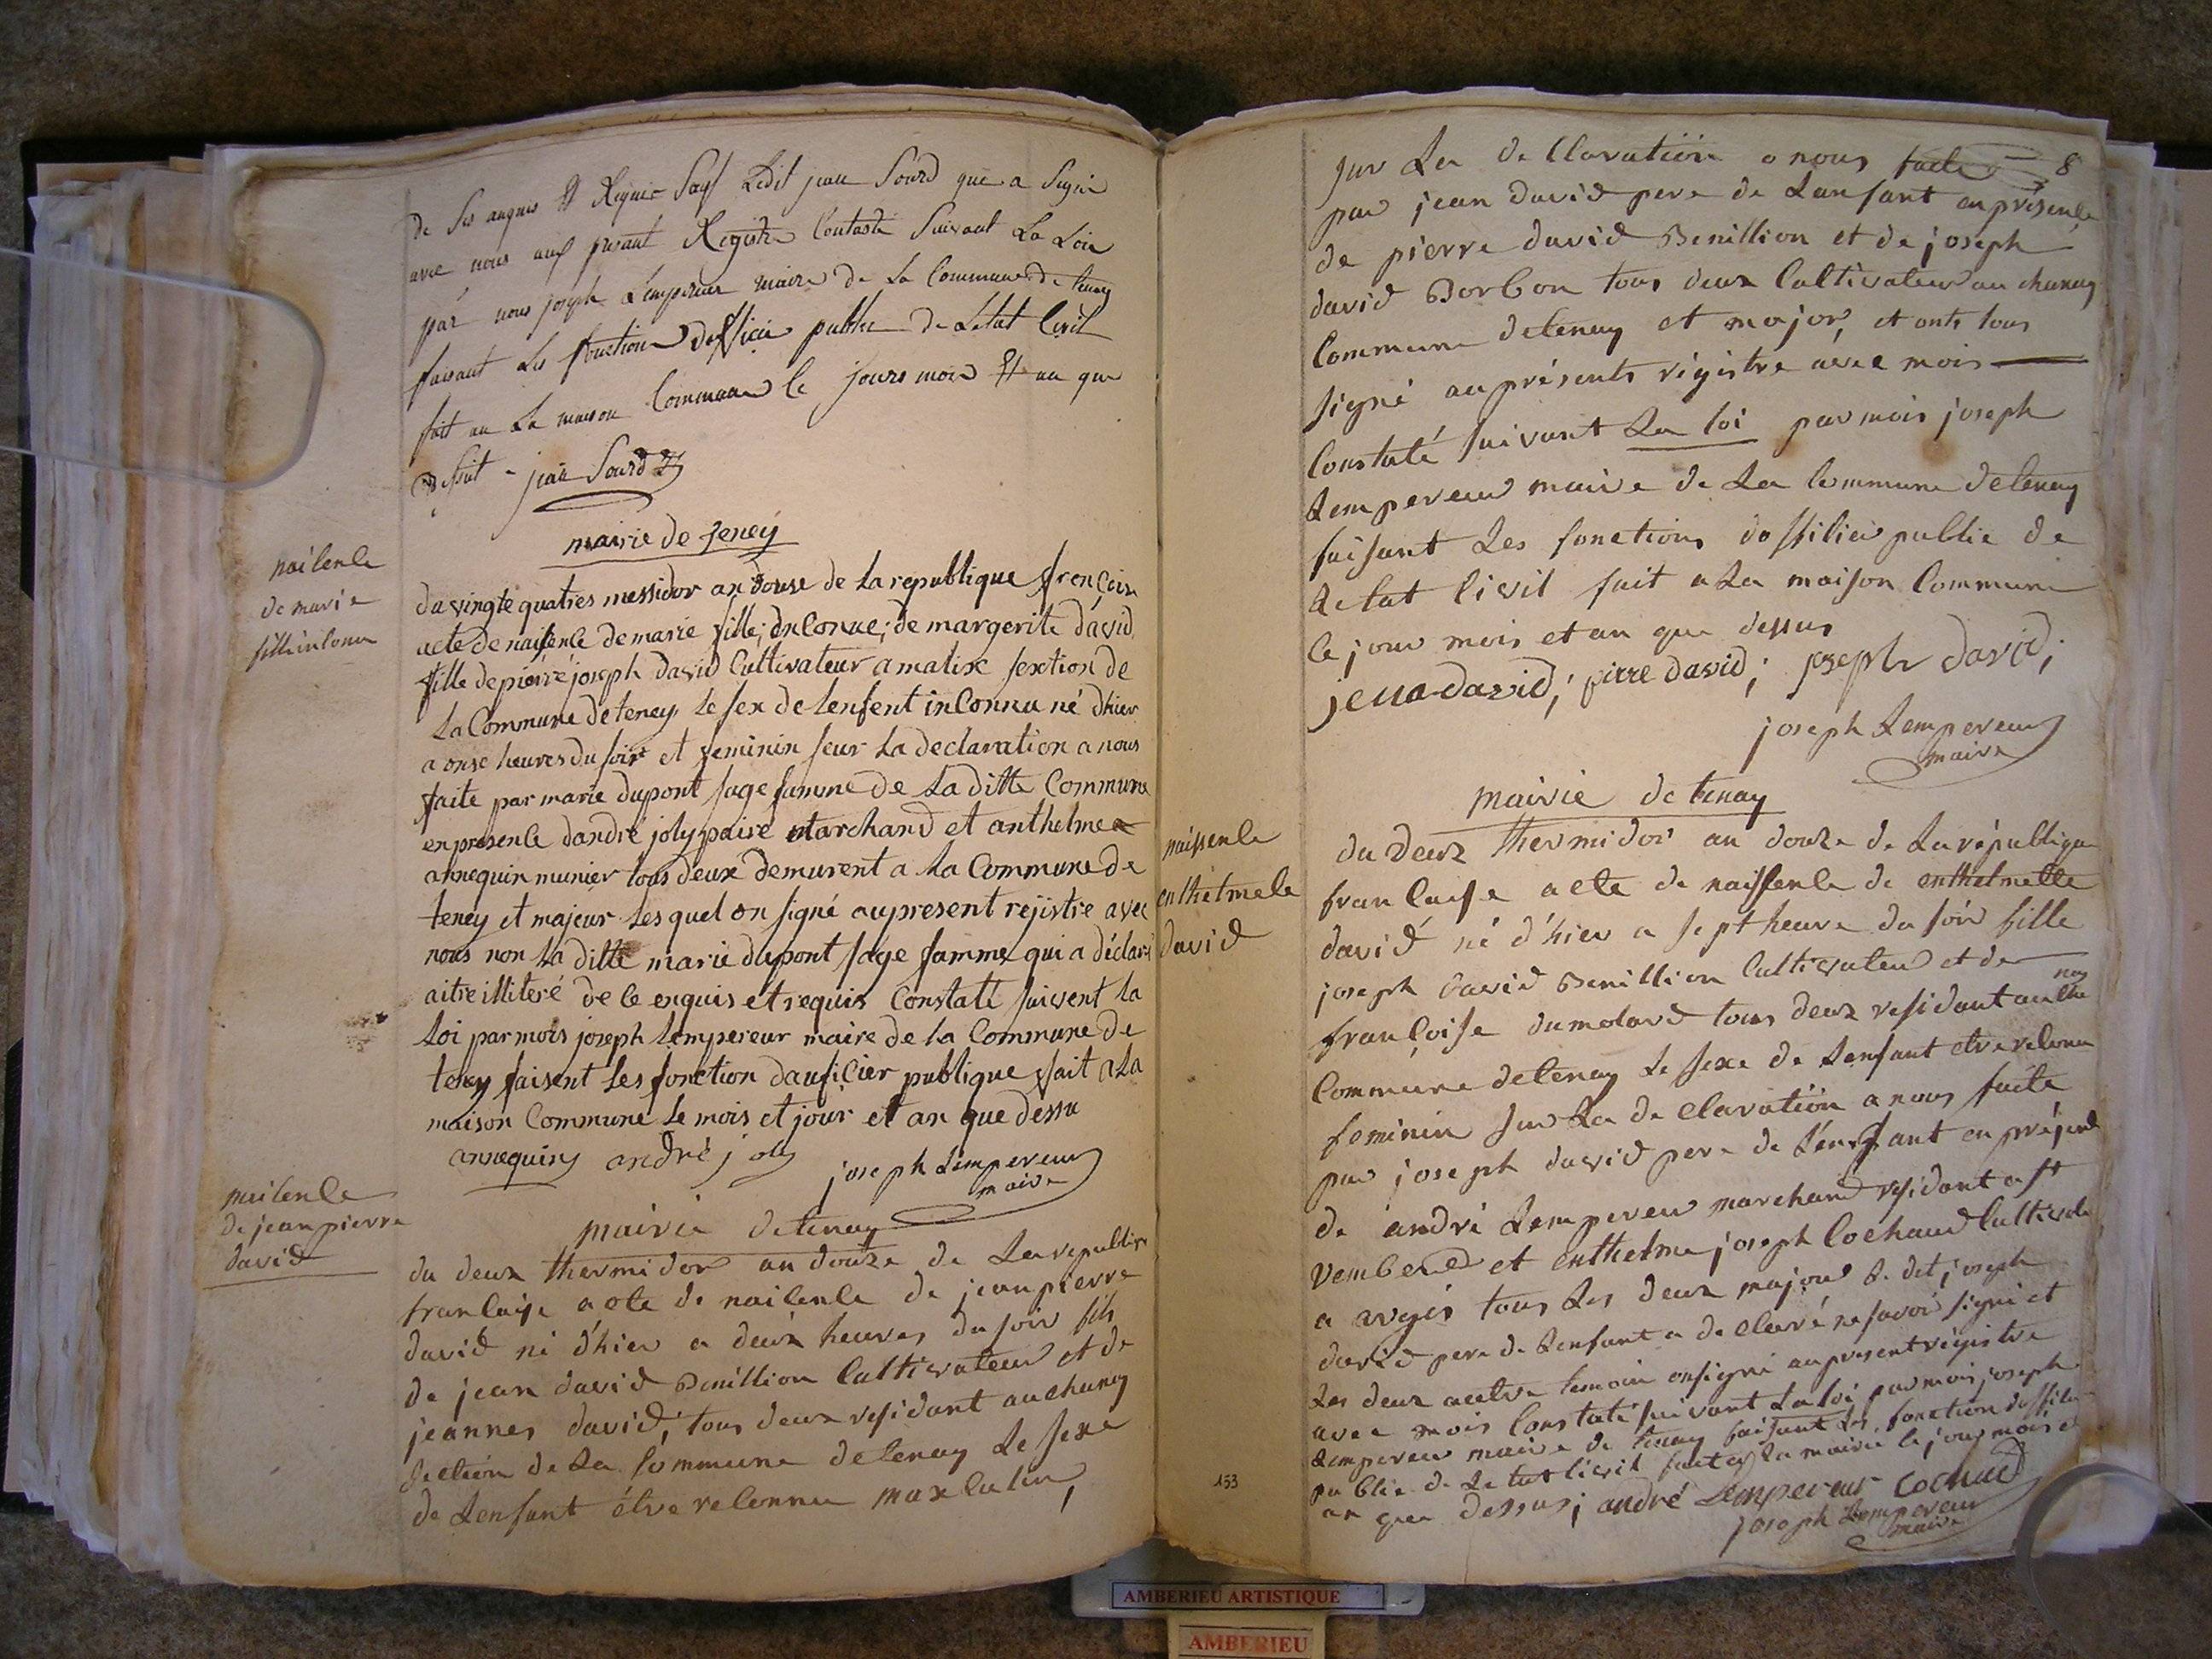 de ses anquis et Requis Sauf Ledit jean Sourd que a Signé
avec nous aus presant Registre Contasté Suivant La Loix
par nous joseph Lempereur maire de La Commune de tenay
faisant Les fonctions dofficier public de Létat Civil
fait au La maison Commune le jours mois Et an que
desuit - jean Sourd
mairie de teney
nailence
de marie
fille inconu
du vingte quatres messidor an douse de La republique françoise
acte de naissence de marie fille; inConue; de margerite david
fille de pierre joseph david Cultivateur a malix sextion de
La Commune de teney Le sex de lenfent inConnu né dhier
a onse heures du soir et feminin seur La declaration a nous
faite par marie dupont sage famme de La ditte Commune
en presence dandré joly paire Marchand et anthelme
annequin munier tous deux demurent a La Commune de
teney et majeur Les quel on signé au present rejistre avec
nous non La ditte marie dupont sage famme qui a déclaré
aitre illiteré de Ce enquis et requis Constaté suivent La
Loi par mois joseph Lempereur maire de La Commune de
teney faisent Les fonction daufiçier publique fait a La
maison Commune Le mois et jour et an que dessu
annequin andré joly joseph Lempereur
maire
nailence
de jean pierre
david
mairie detenay
du deux thermidor an douze de La republiqu
francaise acte de nailence de jean pierre
david né d'hier a deux heures du soir fils
de jean david Benillion Cultivateur et de
jeannes david; tous deux residant au chanay
section de La Commune detenay Le sexe
de Lenfant être reConnu maxCulin,
8
sur La de Claration a nous faite
par jean david pere de Lanfant en présence
de pierre david Benillion et de joseph
david Borbon tous deux Cultivateur au chanay
Commune detenay et major, et onts tous
signé au présents régistre avec mois
Constaté suivant La loi par mois joseph
Lempereur maire de La Commune detenay
faisant Les fonctions dossilier public de
Letat Civil fait a La maison Commune
le jour mois et an que dessus
jean david; pierre david; joseph david;
joseph Lempereur
maire
mairie de tenay
naissence
enthelmele
david
du deux thermidor an douze de La républiqu
francaise acte de naissence de enthelmette
david né d'hier a sept heure du soir fille
joseph david Benillion Cultivateur et de
françoise dumolard tous deux residant au cha
nay
Commune detenay Le sexe de Lenfant etre reConu
feminin sur La de claration a nous faite
par joseph david pere de Lenfant en présence
de andré Lempereur marchand residant a st
Vembered et enthelme joseph Cochaud Cultivate
a argis tous Les deux major Le dit joseph
david pere de Lenfant a de claré ne savoir signé et
Les deux autre temoin on signé au present régistre
avec mois Constaté suivant La loi par mois joseph
Lempereur maire de tenay faisant Les fonction doffilie
public de Letat Civil fait a La mairie le jour mois et
an que dessus; andré Lempereur Cochaud
joseph Lempereur
maire
153
AMBERIEU ARTISTIQUE
AMBERIEU